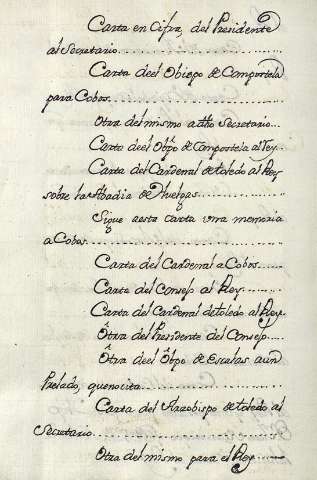 Carta en Cifra, del Presidente
al Secretario
Carta deel Obispo de Compostela
para Cobos
Otra del mismo a dho Secretario
Carta deel Obpo de Compostela al Rey
Carta del Cardenal de toledo al Rey
sobre la Abadia de Huelgas
Sigue aesta carta vna memoria
a Cobos
Carta del Cardenal a Cobos
Carta del Consejo al Rey
Carta del Cardenal de toledo al Rey
Otra del Presidente del Consejo
Otra deel Obpo de Escalas aun
Prelado, quenocita
Carta del Arzobispo de toledo al
Secretario
Otra del mismo para el Rey